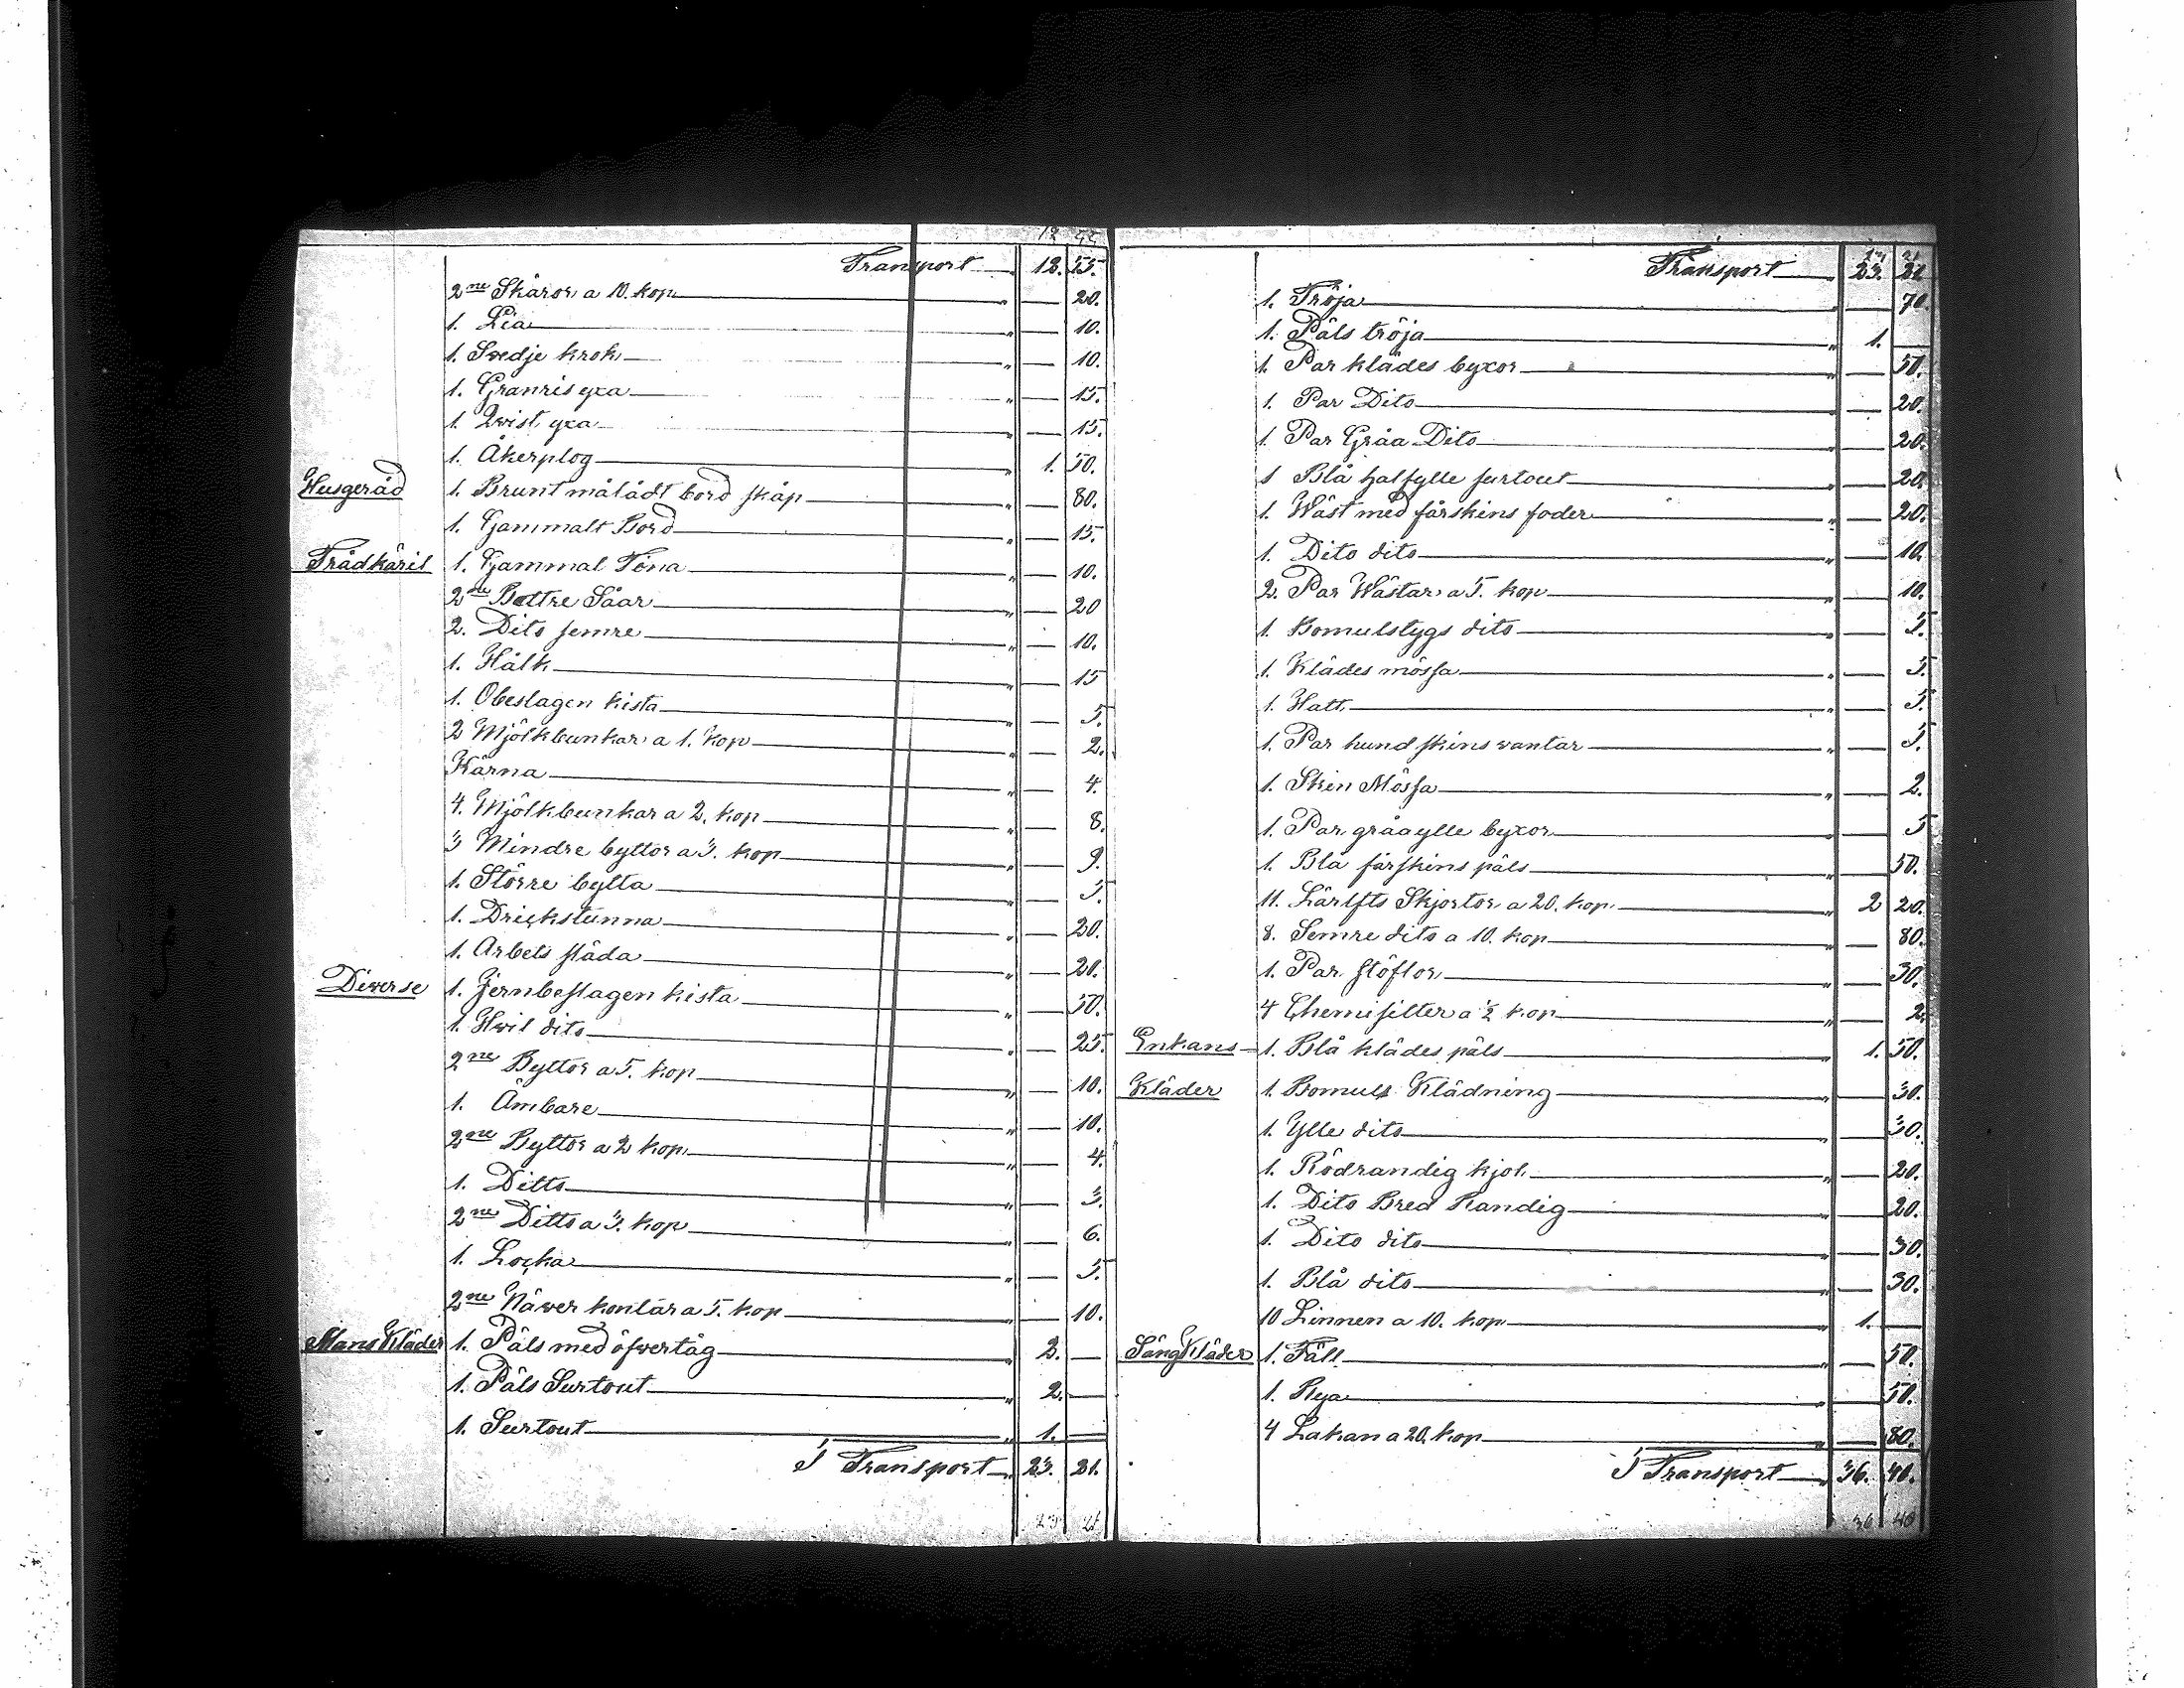 12 55
Transport 12. 55.
2ne Skäror a 10. kop " — 20.
1. Lia " — 10.
1. Svedje krok " — 10.
1. Granris yxa " — 15.
1. Qvist yxa " — 15.
1. Åkerplog " 1. 50.
Husgeråd 1. Brunt måladt bord skåp " — 80.
1. Gammalt Bord " — 15.
Trädkäril 1. Gammal Tina " — 10.
2ne Bettre Såar " — 20
2. Dito semre " — 10.
1. Hålk " — 15
1. Obeslagen kista " — 5.
2 Mjölkbunkar a 1. kop " — 2.
Kärna " — 4.
4. Mjölkbunkar a 2. kop " — 8.
3 Mindre byttor a 3. kop " — 9.
1. Större bytta " — 5.
1. Drickstunna " — 20.
1. Arbets släda " — 20.
Diverse 1. Jernbeslagen kista " — 50.
1. Hvit dito " — 25.
2ne Byttor a 5. kop " — 10.
1. Ämbare " — 10.
2ne Byttor a 2 kop " — 4.
1. Ditto " — 3.
2ne Ditto a 3. kop " — 6.
1. Locka " — 5.
2ne Näver kontar a 5. kop 10.
Mans Kläder 1. Päls med öfvertåg " 3. —
1. Päls Surtout " 2. —
1. Surtout " 1. —
I Transport " 23. 21.
23 21
23 21
Transport " 23. 21
1. Tröja " — 70.
1. Päls tröja " 1. —
1. Par klädes byxor " — 50.
1. Par Dito " — 20.
1. Par Gråa Dito " — 20.
1 Blå halfylle surtout " — 20.
1. Wäst med fårskins foder " — 20.
1. Dito dito " — 10.
2. Par Wästar a 5. kop " — 10.
1. Bomulstygs dito " — 5.
1. Klädes mössa " — 5.
1. Hatt " — 5.
1. Par hundskins vantar " — 5.
1. Skin Mössa " — 2.
1. Par gråa ylle byxor " — 5
1. Blå fårskins päls " 50.
11. Lärfts Skjortor a 20. kop " 2 20.
8. Semre dito a 10. kop " — 80.
1. Par stöflor " — 30.
4 Chemisetter a ½ kop " — 2.
Enkans 1. Blå klädes päls " 1. 50.
Kläder 1. Bomuls Klädning " — 30.
1. Ylle dito " — 30.
1. Rödrandig kjol " — 20.
1. Dito Bred Randig " — 20.
1. Dito dito " — 30.
1. Blå dito " — 30.
10 Linnen a 10. kop " 1. —
Säng Kläder 1. Fäll " — 50.
1. Rya " — 50.
4 Lakan a 20. kop " — 80.
I Transport " 36. 40.
36 40